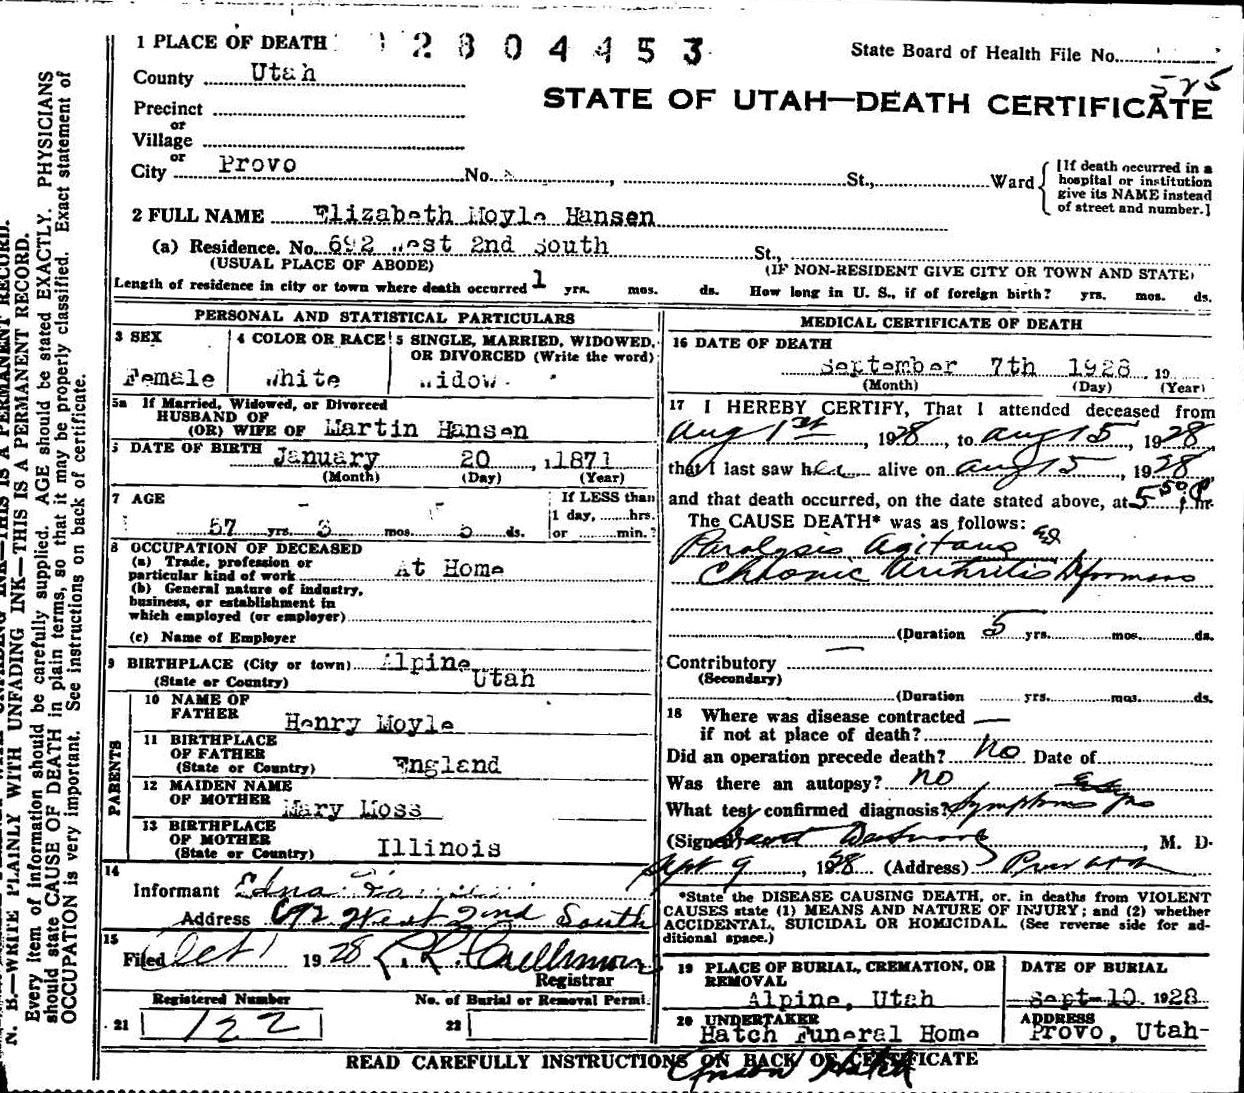 1 PLACE OF DEATH 2804453 State Board of Health File No.
County Utah 525
STATE OF UTAH—DEATH CERTIFICATE
Precinct
or
Village
or
City Provo No. , St., Ward
[If death occurred in a
hospital or institution
give its NAME instead
of street and number.]
2 FULL NAME Elizabeth Moyle Hansen
(a) Residence. No. 692 West 2nd South St.,
(USUAL PLACE OF ABODE) (IF NON-RESIDENT GIVE CITY OR TOWN AND STATE)
Length of residence in city or town where death occurred 1 yrs. mos. ds. How long in U. S., if of foreign birth? yrs. mos. ds.
PERSONAL AND STATISTICAL PARTICULARS
3 SEX
Female
4 COLOR OR RACE
White
5 SINGLE, MARRIED, WIDOWED,
OR DIVORCED (Write the word)
Widow
5a If Married, Widowed, or Divorced
HUSBAND OF
(OR) WIFE OF Martin Hansen
6 DATE OF BIRTH January 20, 1871
(Month) (Day) (Year)
7 AGE
57 yrs. mos. ds.
If LESS than
1 day, hrs.
or min.?
8 OCCUPATION OF DECEASED
(a) Trade, profession or
particular kind of work At Home
(b) General nature of industry,
business, or establishment in
which employed (or employer)
(c) Name of Employer
9 BIRTHPLACE (City or town) Alpine
(State or Country) Utah
PARENTS
10 NAME OF
FATHER Henry Moyle
11 BIRTHPLACE
OF FATHER
(State or Country) England
12 MAIDEN NAME
OF MOTHER Mary Moss
13 BIRTHPLACE
OF MOTHER
(State or Country) Illinois
14
Informant Edna
Address 692 West 2nd South
15
Filed Oct 1 1928
Registrar
Registered Number
21 122
No. of Burial or Removal Permi.
22
MEDICAL CERTIFICATE OF DEATH
16 DATE OF DEATH
September 7th 1928, 19
(Month) (Day) (Year)
17 I HEREBY CERTIFY, That I attended deceased from
Aug 1st, 1928, to Aug 15, 1928,
that I last saw her alive on Aug 15, 1928
and that death occurred, on the date stated above, at 5 50 P hr.
The CAUSE DEATH* was as follows:
Paralysis Agitans
Chronic Arthritis Deformans
(Duration 5 yrs. mos. ds.
Contributory
(Secondary)
(Duration yrs. mos. ds.
18 Where was disease contracted
if not at place of death?
Did an operation precede death? No Date of
Was there an autopsy? no
What test confirmed diagnosis? Symptoms
(Signed) , M. D.
Sept 9, 1928 (Address) Provo Utah
*State the DISEASE CAUSING DEATH, or, in deaths from VIOLENT
CAUSES state (1) MEANS AND NATURE OF INJURY; and (2) whether
ACCIDENTAL, SUICIDAL OR HOMICIDAL. (See reverse side for ad-
ditional space.)
19 PLACE OF BURIAL, CREMATION, OR
REMOVAL
Alpine, Utah
DATE OF BURIAL
Sept-10, 1928
20 UNDERTAKER
Hatch Funeral Home
ADDRESS
Provo, Utah-
READ CAREFULLY INSTRUCTIONS ON BACK OF CERTIFICATE
Hatch
N. B.—WRITE PLAINLY WITH UNFADING INK—THIS IS A PERMANENT RECORD.
Every item of information should be carefully supplied. AGE should be stated EXACTLY. PHYSICIANS
should state CAUSE OF DEATH in plain terms, so that it may be properly classified. Exact statement of
OCCUPATION is very important. See instructions on back of certificate.